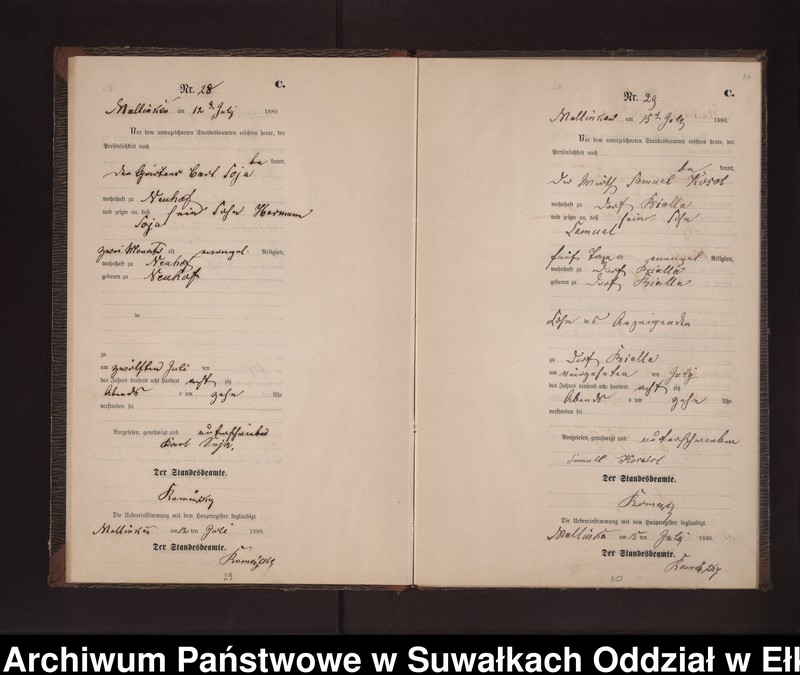 Nr. 28 C.
am 12 ten July 1880.
Vor dem unterzeichneten Standesbeamten erschien heute, der
Persönlichkeit nach
be kannt,
Carl Soja
wohnhaft zu Neuhof
und zeigte an, daß sein Sohn Hermann
Soja
zwei Monate alt evangel. Religion,
wohnhaft zu Neuhof
geboren zu Neuhof
de
zu
am zwölften Juli ten
des Jahres tausend acht hundert acht zig
Abends o um zehn Uhr
verstorben sei
Vorgelesen, genehmigt und unterschrieben
Karl Soja.
Der Standesbeamte.
Die Uebereinstimmung mit dem Hauptregister beglaubigt.
am 12 ten Juli 1880.
Der Standesbeamte.
29
16
Nr. 29 C.
am 15 ten July 1880.
Vor dem unterzeichneten Standesbeamten erschien heute, der
Persönlichkeit nach
be kannt,
Der Wirth Samuel
wohnhaft zu Dorf Bialla
und zeigte an, daß sein Sohn
Samuel
fünf Tage alt evangel Religion,
wohnhaft zu Dorf Bialla
geboren zu Dorf Bialla
Sohn des Anzeigenden
zu Dorf Bialla
am ten July
des Jahres tausend acht hundert acht zig
Abends o um zehn Uhr
verstorben sei
Vorgelesen, genehmigt und unterschrieben
Der Standesbeamte.
Die Uebereinstimmung mit dem Hauptregister beglaubigt.
am 15 ten July 1880.
Der Standesbeamte.
30
Archiwum Państwowe w Suwałkach Oddział w Ełk